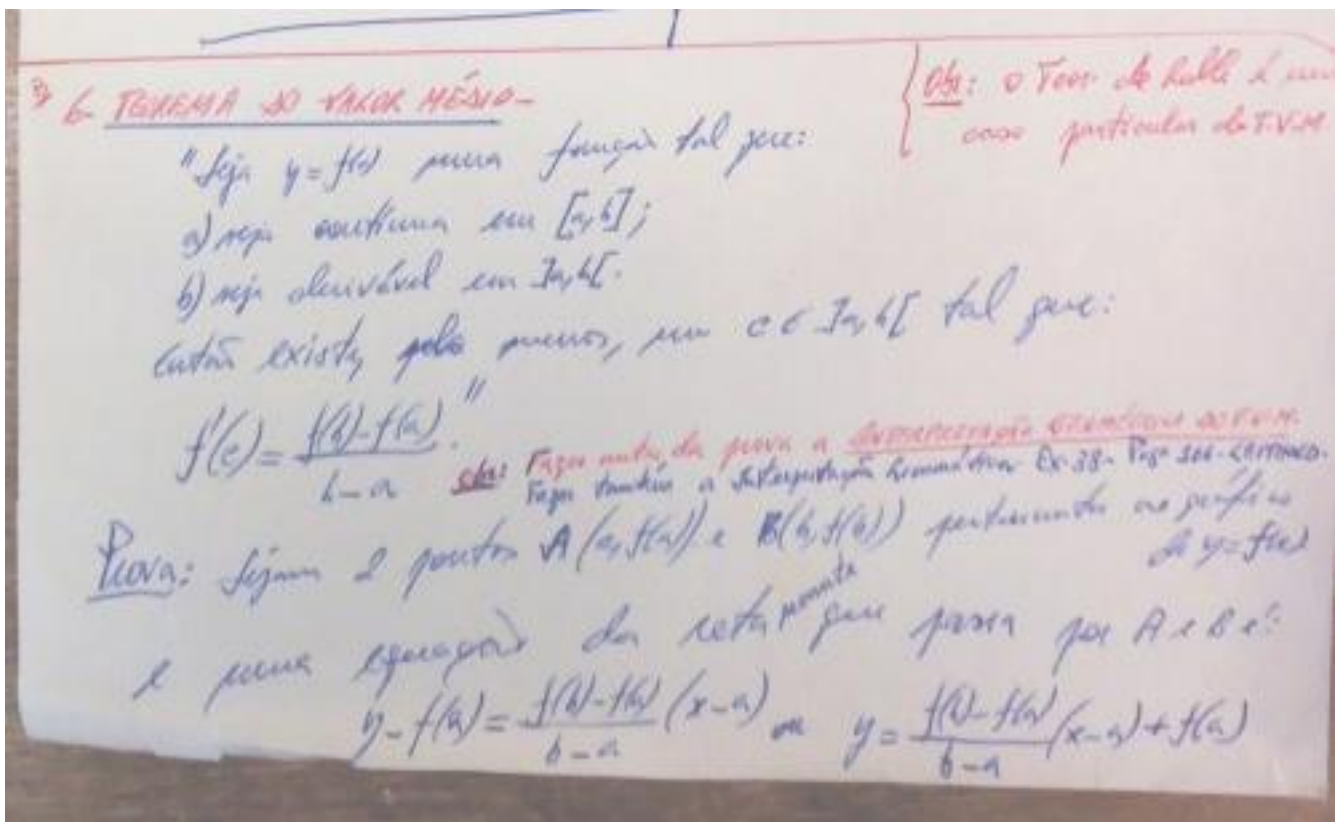 6- TEOREMA DO VALOR MÉDIO-
Obs: O Teor. de Rolle é um
caso particular do T.V.M.
"Seja y = f(x) uma função tal que:
a) seja contínua em [a,b];
b) seja derivável em ]a,b[.
Então existe, pelo menos, um c ∈ ]a,b[ tal que:
f'(c) = (f(b)-f(a))/(b-a)."
Obs: Fazer antes da prova a INTERPRETAÇÃO GEOMÉTRICA DO T.V.M.
Fazer também a Interpretação Ex-38- Pag
Prova: Sejam 2 pontos A(a,f(a)) e B(b,f(b)) pertencentes ao gráfico
de y=f(x)
e uma equação da reta secante que passa por A e B é:
y-f(a) = (f(b)-f(a))/(b-a) (x-a) ou y = (f(b)-f(a))/(b-a) (x-a)+f(a)